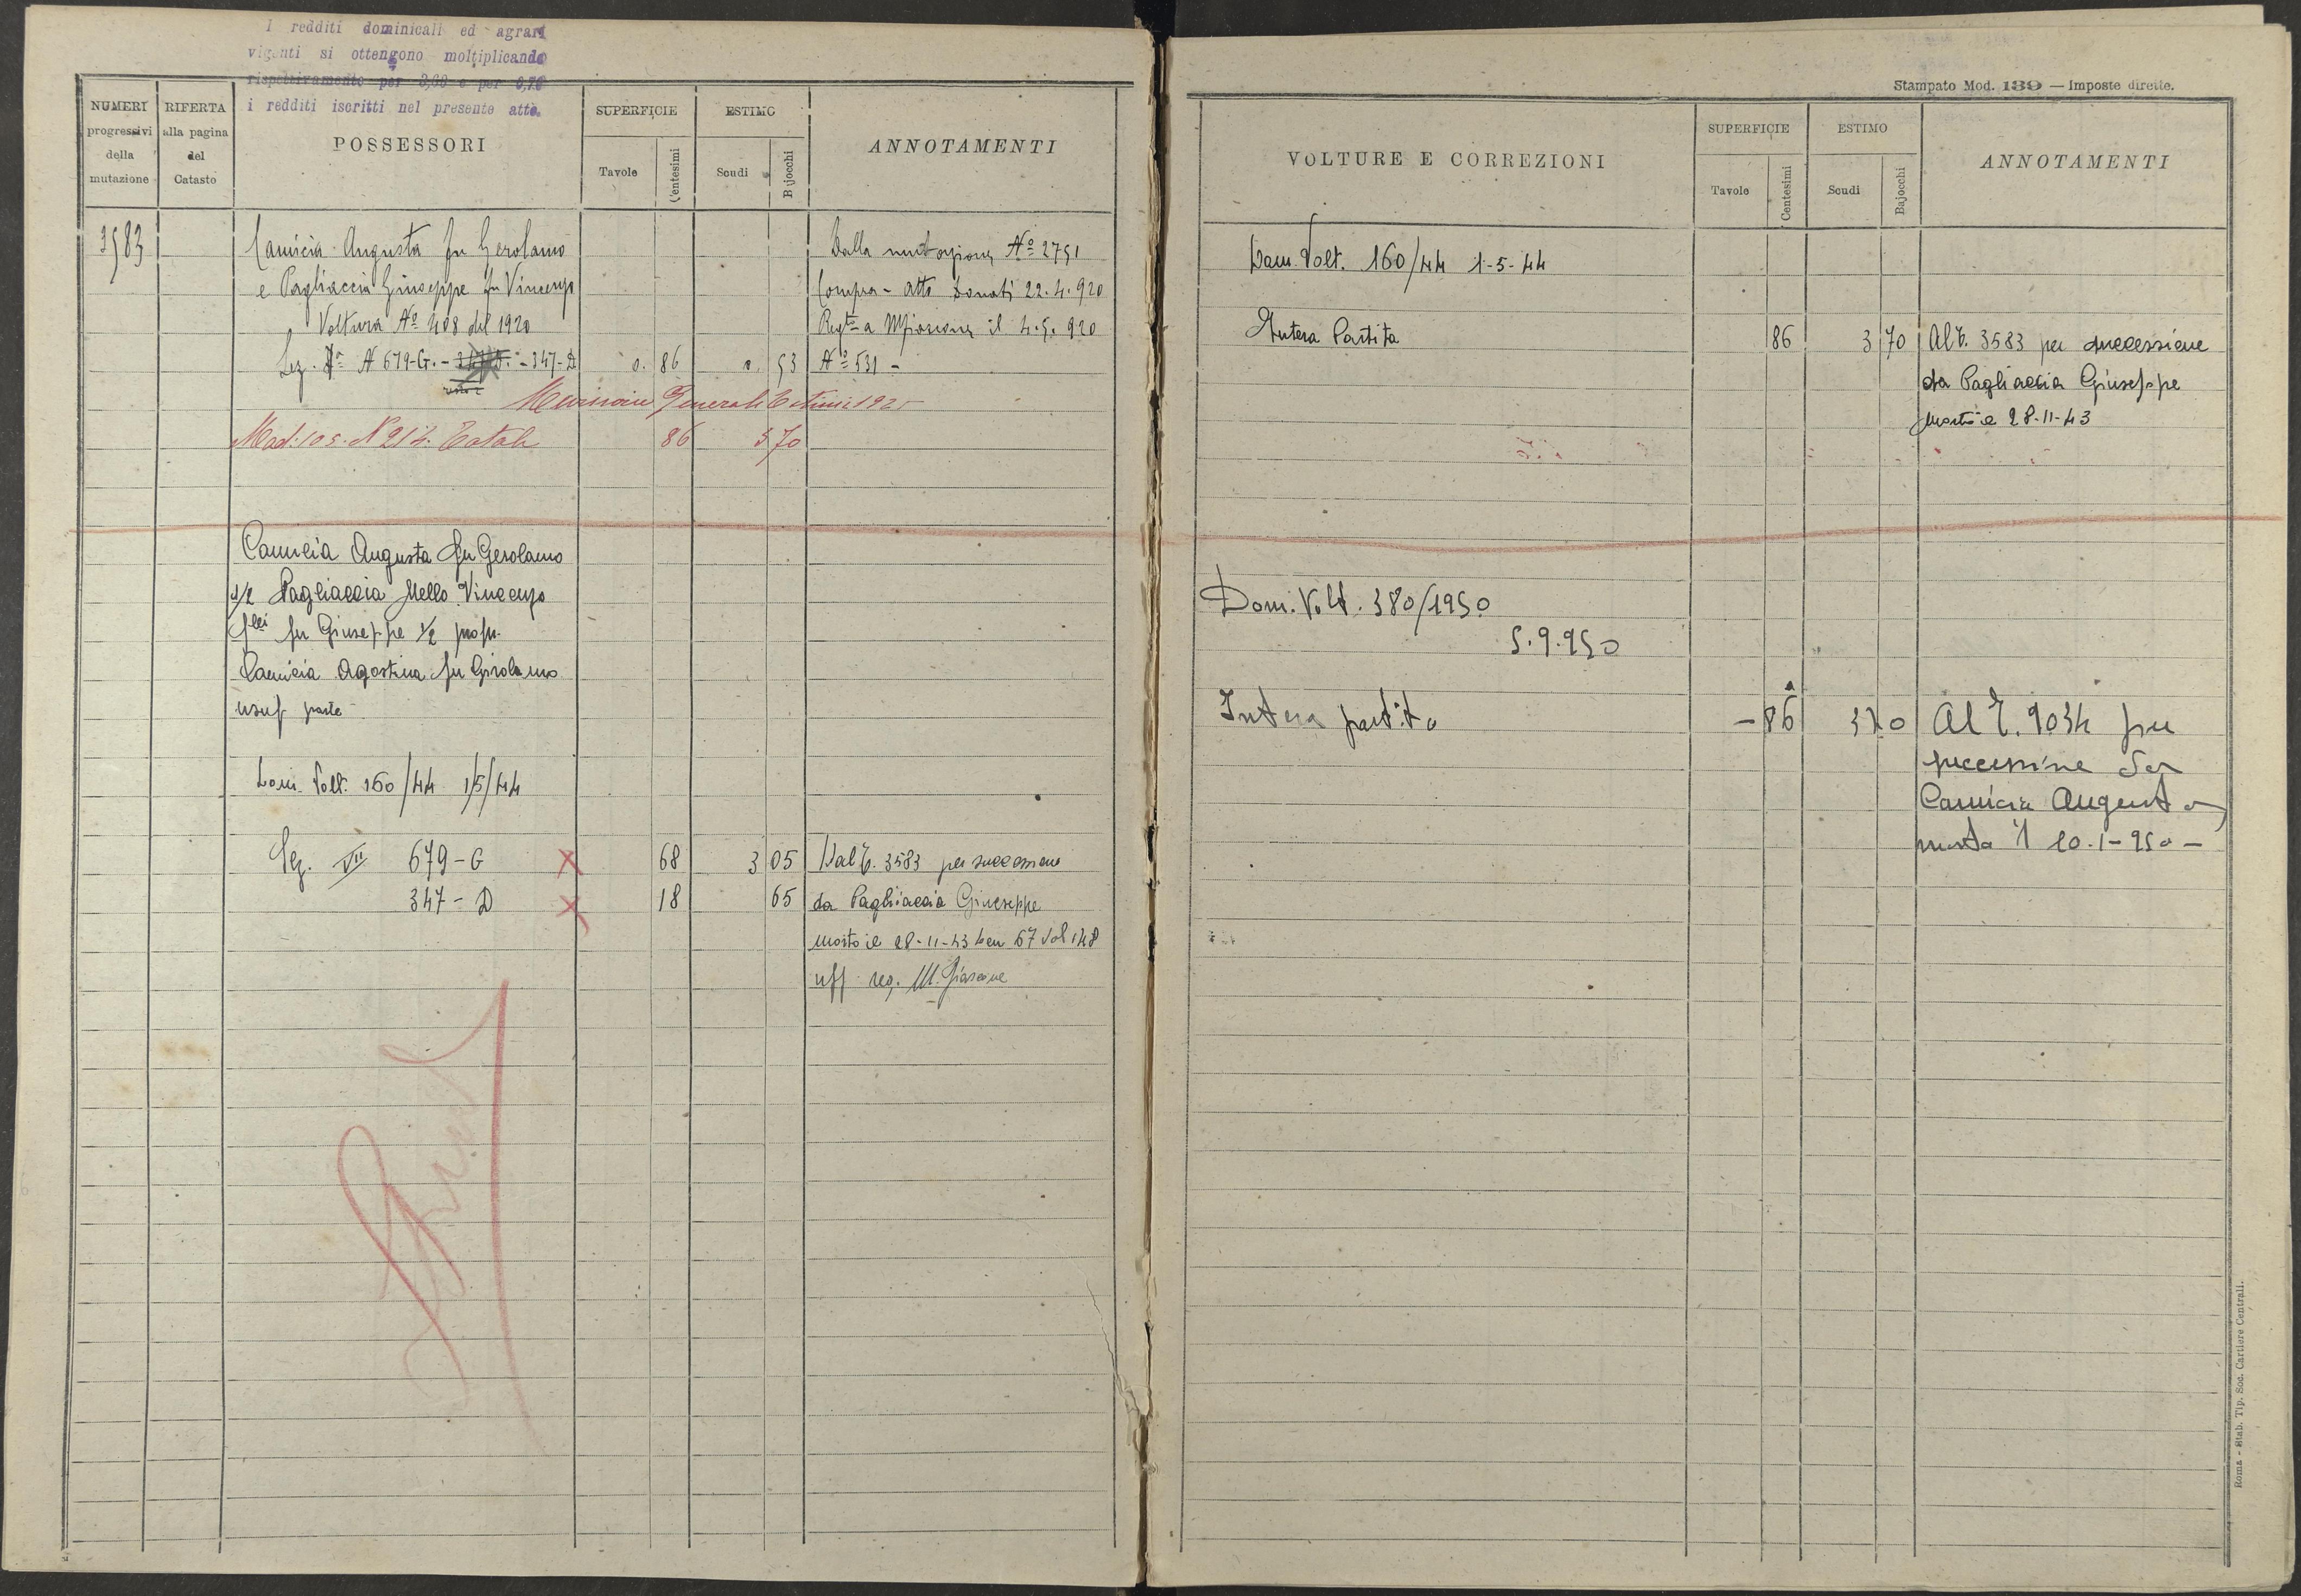 I redditi dominicali ed agrari
vigenti si ottengono moltiplicando
rispettivamente per 3,60 e per 6,70
i redditi iscritti nel presente atto.
NUMERI
progressivi
della
mutazione
RIFERTA
alla pagina
del
Catasto
POSSESSORI
SUPERFICIE
Tavole
Centesimi
ESTIMO
Scudi
Bajocchi
ANNOTAMENTI
3583
Camicia Augusta fu Gerolamo
e Pagliaccia Giuseppe fu Vincenzo
Voltura No 408 del 1920
Sez. N 679-G. - 347-D 0. 86 0. 53
Dalla mutazione No 2751
Compra - atto Donati 22.4.920
Regto a Mfiascone il 4.5.920
No 531 -
Revisione Generale Estimi 192
Mod: 105. N 214. Totale 86 3 70
Camicia Augusta fu Gerolamo
1/2 Pagliaccia Nello Vincenzo
flli fu Giuseppe 1/2 propr.
Camicia Agostina fu Girolamo
usuf parte
Dom. Volt. 160/44 1/5/44
Sez. VII 679-G X 68 3 05
347-D X 18 65
Dal T. 3583 per successione
da Pagliaccia Giuseppe
morto il 28-11-43 den 67 Vol 148
uff reg. M. Fiascone
Stampato Mod. 139 — Imposte dirette.
VOLTURE E CORREZIONI
SUPERFICIE
Tavole
Centesimi
ESTIMO
Scudi
Bajocchi
ANNOTAMENTI
Dom. Volt. 160/44 1-5-44
Intera Partita 86 3 70
Al T. 3583 per successione
da Pagliaccia Giuseppe
morto il 28-11-43
Dom. Volt. 380/1950
5.9.950
Intera partita - 86 3 70
Al T. 9034 per
successione da
Camicia Augusta
morta il 10-1-950 -
Roma - Stab. Tip. Soc. Cartiere Centrali.